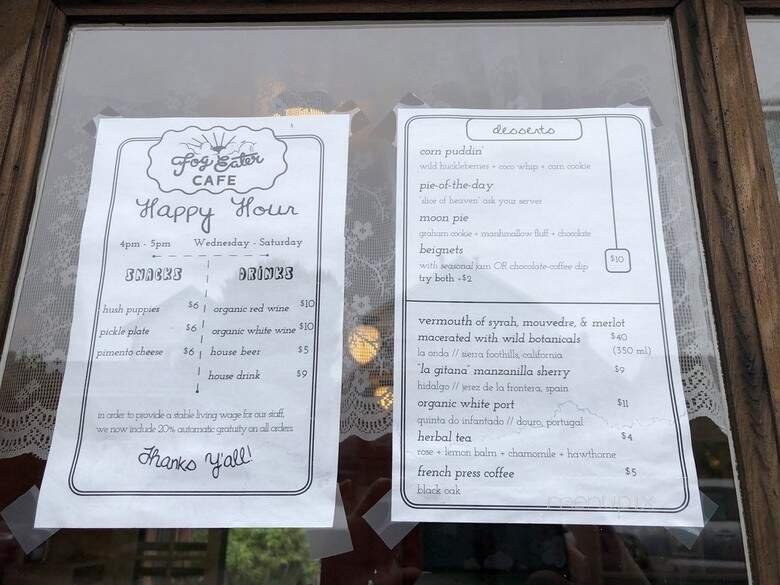 Fog Eater
CAFE
Happy Hour
4pm - 5pm Wednesday - Saturday
SNACKS DRINKS
hush puppies $6
pickle plate $6
pimento cheese $6
organic red wine $10
organic white wine $10
house beer $5
house drink $9
in order to provide a stable living wage for our staff,
we now include 20% automatic gratuity on all orders
Thanks y'all!
desserts
corn puddin'
wild huckleberries + coco whip + corn cookie
pie-of-the-day
"slice of heaven" ask your server
moon pie
graham cookie + marshmallow fluff + chocolate
beignets
with seasonal jam OR chocolate-coffee dip
try both +$2
$10
vermouth of syrah, mouvedre, & merlot
macerated with wild botanicals $40
la onda // sierra foothills, california (350 ml)
"la gitana" manzanilla sherry $9
hidalgo // jerez de la frontera, spain
organic white port $11
quinta do infantado // douro, portugal
herbal tea $4
rose + lemon balm + chamomile + hawthorne
french press coffee $5
black oak
menupix